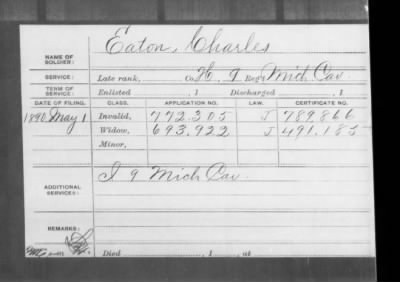 Eaton, Charles
NAME OF SOLDIER:
SERVICE: Late rank, Co. H, 9 Reg't Mich Cav.
TERM OF SERVICE: Enlisted , 1 Discharged , 1
DATE OF FILING. CLASS. APPLICATION NO. LAW. CERTIFICATE NO.
1890 May 1 Invalid, 772.305 J 789.866
Widow, 693.922 J 491.185
Minor,
ADDITIONAL SERVICES: I 9 Mich Cav.
REMARKS:
Died , 1 , at